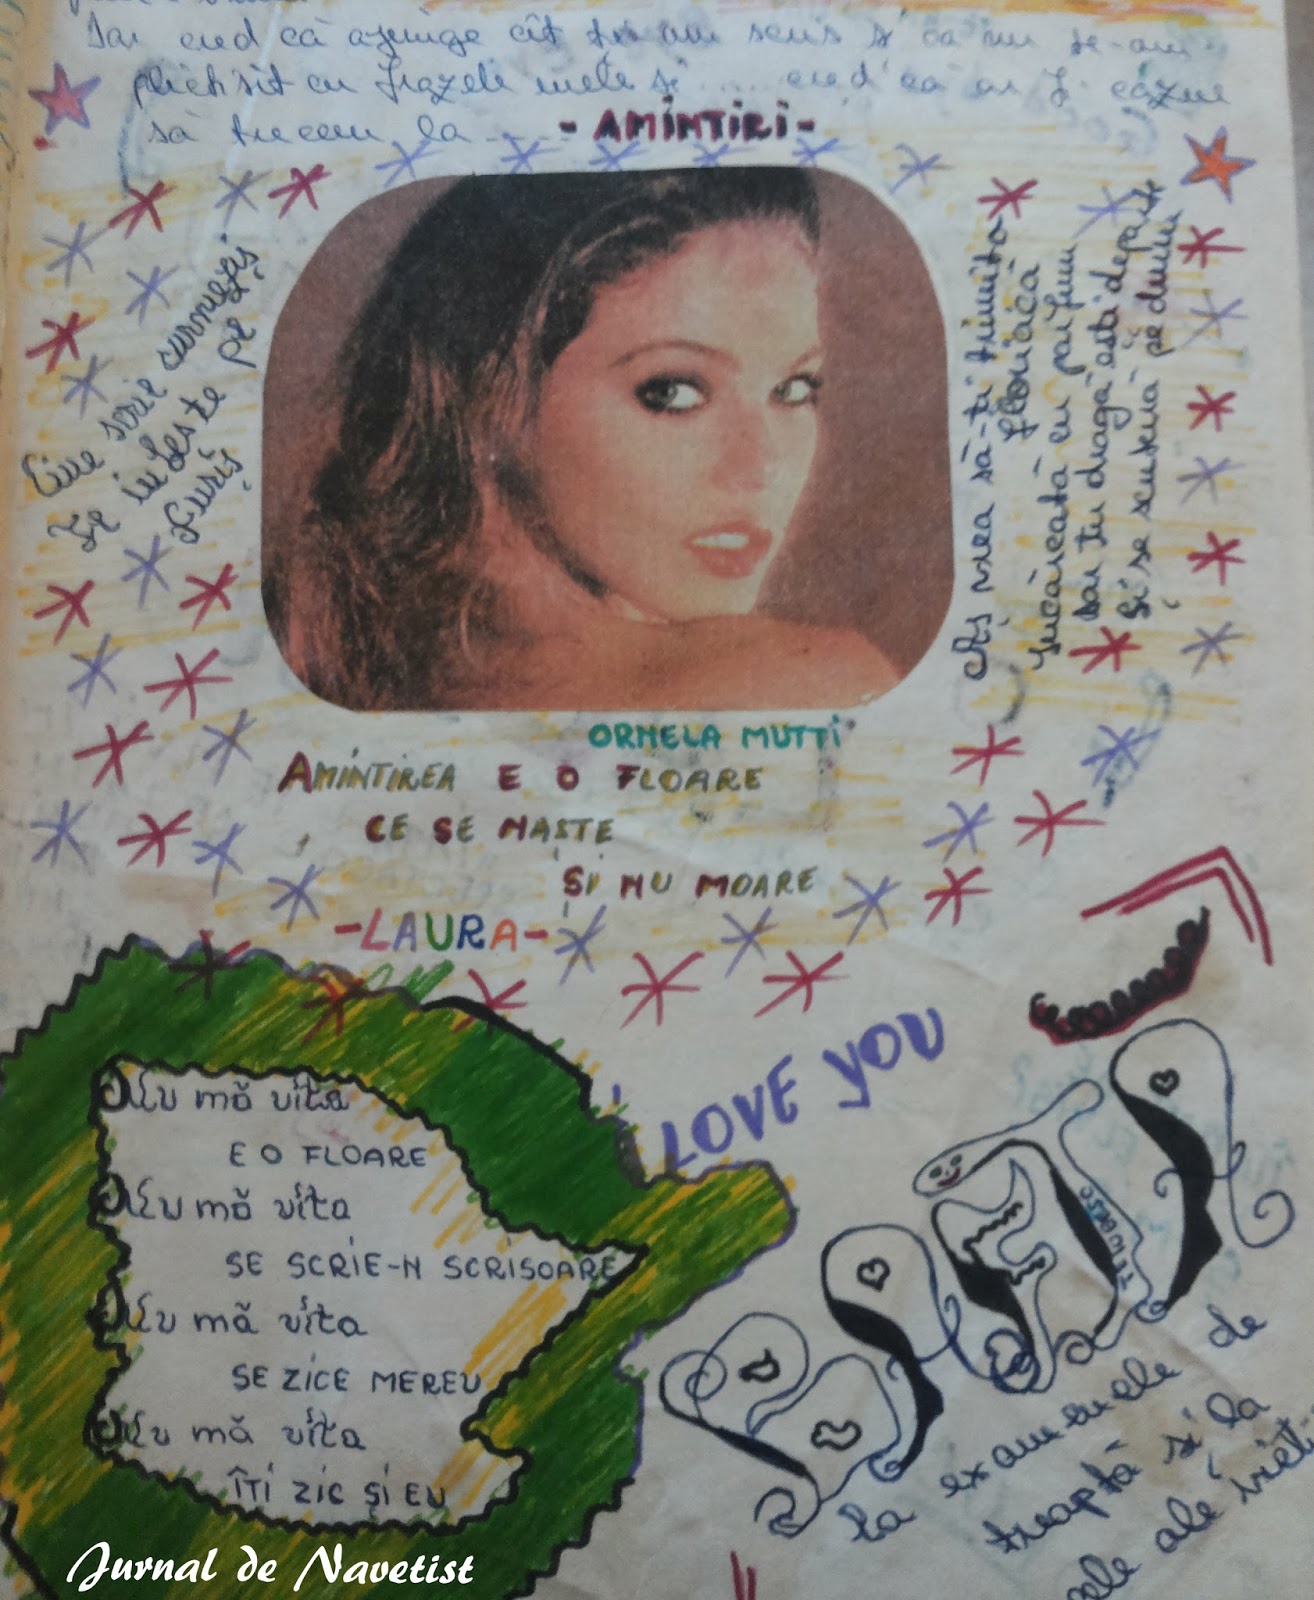 Iar cred că ajunge cît ți-am scris și că nu te-am
plictisit cu frazele mele și ..... cred că ar fi cazul
să trecem la ....
- AMINTIRI -
Cine scrie curmeziș
Te iubește pe
furiș
Aș vrea să-ți trimit o
floricică
Încărcată cu parfum
dar tu dragă ești departe
Și se scutură pe drum
ORNELA MUTTI
AMINTIREA E O FLOARE
CE SE NASTE
ȘI NU MOARE
-LAURA-
I LOVE YOU
Nu mă uita
E O FLOARE
Nu mă uita
SE SCRIE-N SCRISOARE
Nu mă uita
SE ZICE MEREU
Nu mă uita
ÎȚI ZIC ȘI EU
BAFTĂ
TE IUBESC
la examenele de
treaptă și la
cele ale vieții
Jurnal de Navetist